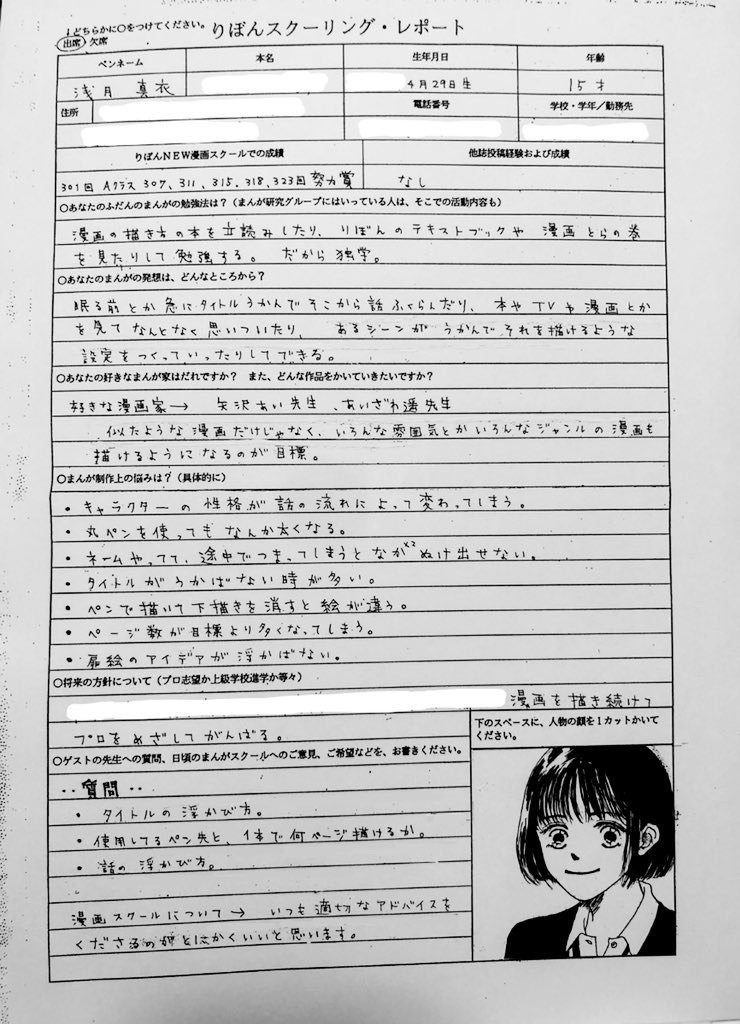 ↓どちらかに○をつけてください。
りぼんスクーリング・レポート
出席 欠席
ペンネーム
本名
生年月日
年齢
浅月 真衣
4月29日生
15才
住所
電話番号
学校・学年／勤務先
りぼんNEW漫画スクールでの成績
他誌投稿経験および成績
301回 Aクラス 307、311、315、318、323回 努力賞
なし
○あなたのふだんのまんがの勉強法は？（まんが研究グループにはいっている人は、そこでの活動内容も）
漫画の描き方の本を立読みしたり、りぼんのテキストブックや 漫画とらの巻
を見たりして勉強する。 だから独学。
○あなたのまんがの発想は、どんなところから？
眠る前とか急にタイトルうかんでそこから話ふくらんだり、本やTVや漫画とか
を見てなんとなく思いついたり、 あるシーンが うかんでそれを描けるような
設定をつくっていったりしてできる。
○あなたの好きなまんが家はだれですか？ また、どんな作品をかいていきたいですか？
好きな漫画家→ 矢沢あい先生、あいざわ遥先生
似たような漫画だけじゃなく、いろんな雰囲気とかいろんなジャンルの漫画も
描けるようになるのが目標。
○まんが制作上の悩みは？（具体的に）
・キャラクターの性格が話の流れによって変わってしまう。
・丸ペンを使ってもなんか太くなる。
・ネームやってて、途中でつまってしまうとなか×2ぬけ出せない。
・タイトルがうかばない時が多い。
・ペンで描いて下描きを消すと絵が違う。
・ページ数が目標より多くなってしまう。
・扉絵のアイデアが浮かばない。
○将来の方針について（プロ志望か上級学校進学か等々）
漫画を描き続けて
プロをめざしてがんばる。
下のスペースに、人物の顔を1カットかいて
ください。
○ゲストの先生への質問、日頃のまんがスクールへのご意見、ご希望などを、お書きください。
・・質問・・
・タイトルの浮かび方。
・使用してるペン先と、1本で何ページ描けるか。
・話の浮かび方。
漫画スクールについて→ いつも適切なアドバイスを
くださるのでとにかくいいと思います。